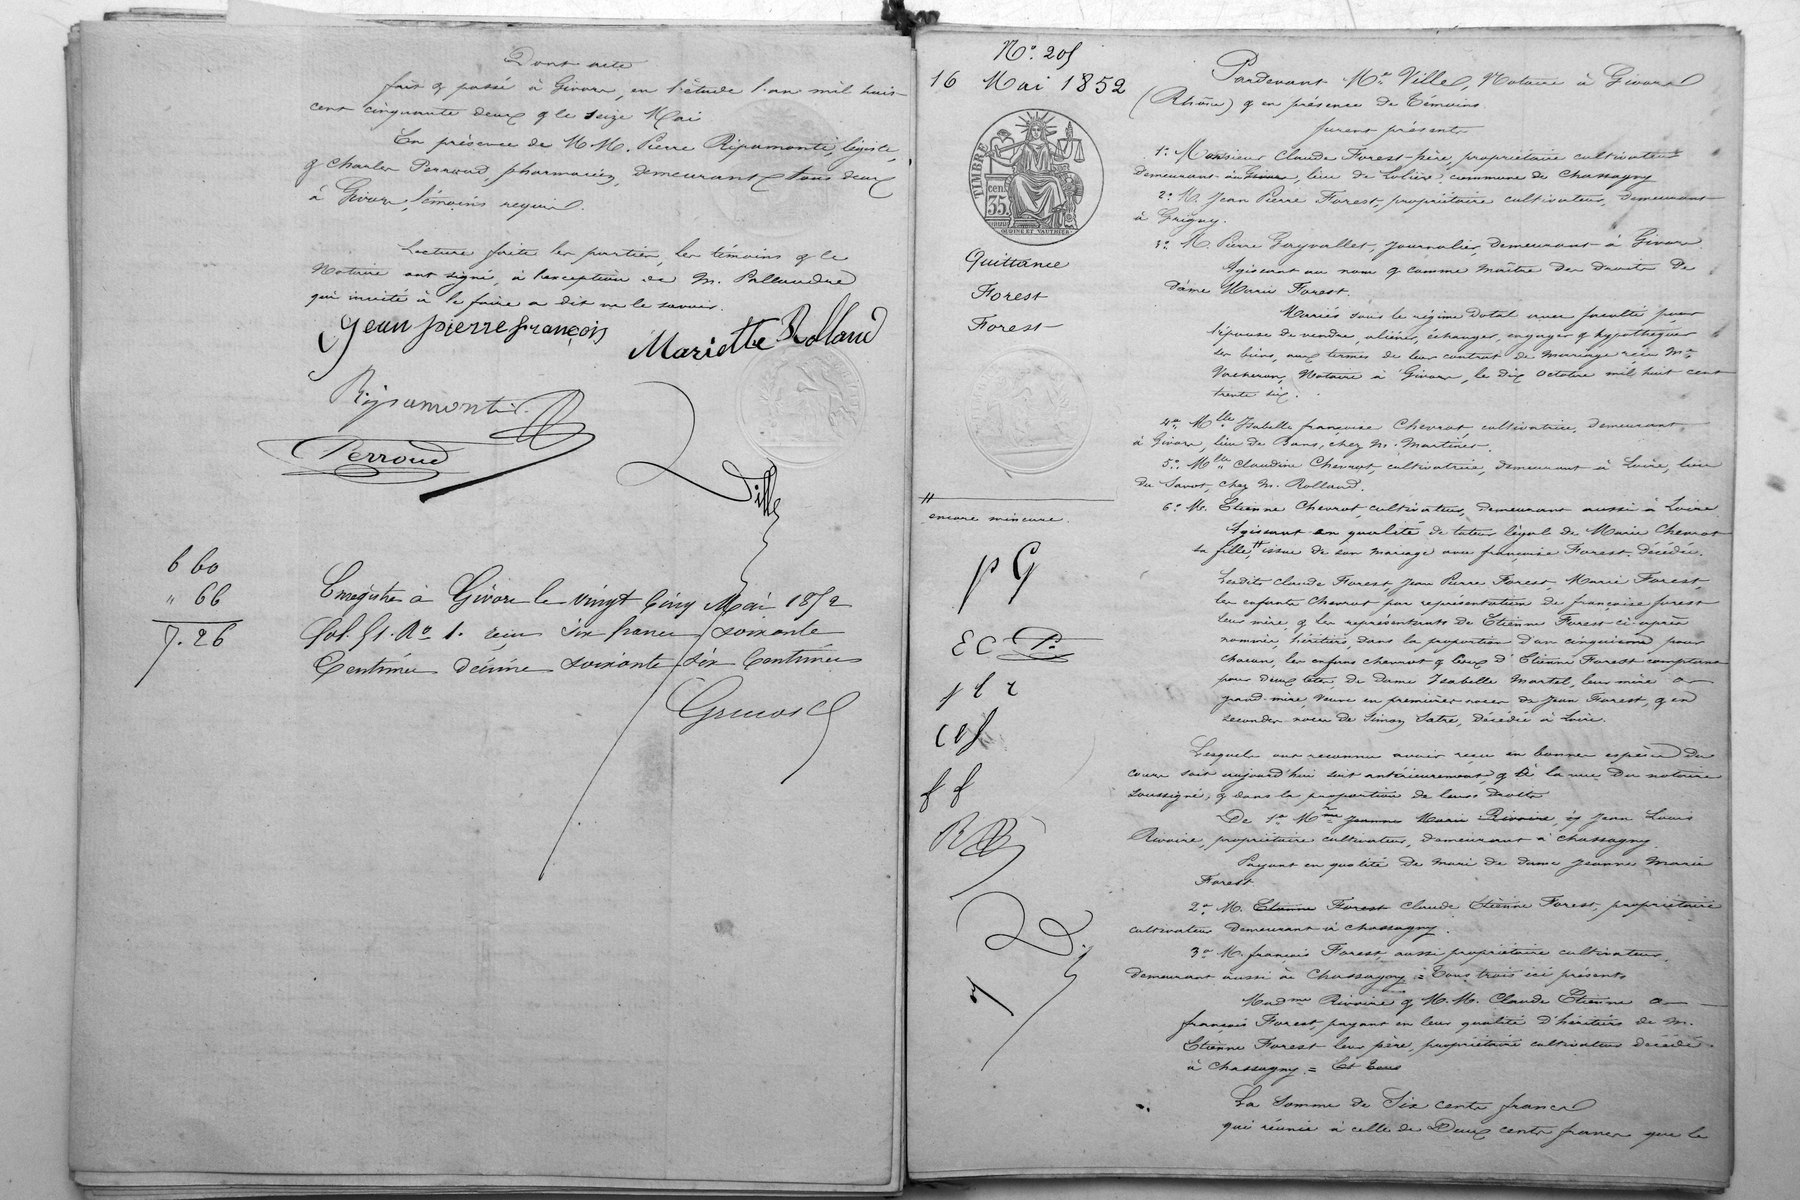 Dont acte
fait & passé à Givors, en l'étude l'an mil huit
cent cinquante deux & le seize Mai
En présence de M.M. Pierre Ripamonti, légiste,
& Charles Perroud, pharmacien, demeurant tous deux
à Givors, témoins requis.
Lecture faite les parties, les témoins & le
Notaire ont signé, à l'exception de M.
qui invité à le faire a dit ne le savoir.
Jean pierre françois
Mariette Rolland
Ripamonti
Perroud
Ville
6 60
" 66
7.26
Enregistré à Givors le vingt cinq Mai 1852
fol. 51. Ro 1. reçu six francs soixante
Centimes décime soixante six Centimes
No. 205
16 Mai 1852
TIMBRE
cen. 35.
Quittance
Forest
Forest
#
encore mineure.
p G
E C P.
c e f
f f
R
Pardevant Me. Ville, Notaire à Givors
(Rhône) & en présence de témoins.
furent présents
1o. Monsieur Claude Forest père, propriétaire cultivateur
demeurant au lieu de commune de Chassagny
2o. M. Jean Pierre Forest, propriétaire cultivateur, demeurant
à Grigny.
3o. M. Pierre Gayvallet, journalier, demeurant à Givors
Agissant au nom & comme maître des droits de
Dame Marie Forest.
Mariés sous le régime dotal avec faculté pour
l'épouse de vendre, aliéner, échanger, engager & hypothéquer
ses biens, aux termes de leur contrat de mariage reçu Me.
Vacheron, Notaire à Givors, le dix octobre mil huit cent
trente six.
4o. Mlle Isabelle françoise Chevrot cultivatrice, demeurant
à Givors, lieu de Bans, chez M. Martinet.
5o. Mlle Claudine Chevrot, cultivatrice, demeurant à Loire, lieu
du chez M. Rolland.
6o. M. Etienne Chevrot, cultivateur, demeurant aussi à Loire
Agissant en qualité de tuteur légal de Marie Chevrot
sa fille # issue de son mariage avec françoise Forest, décédée.
Lesdits Claude Forest, Jean Pierre Forest, Marie Forest,
les enfants Chevrot par représentation de françoise forest
leur mère, & les représentants de Etienne Forest ci-après
nommés, héritiers, dans la proportion d'un cinquième pour
chacun, les enfans chevrot & ceux d'Etienne Forest comptant
pour deux têtes, de Dame Isabelle Martel, leur mère &
grand mère, veuve en premières noces de Jean Forest, & en
secondes noces de Simon Satre, décédée à Loire.
Lesquels ont reconnu avoir reçu en bonnes espèces du
cours soit aujourd'hui soit antérieurement, & à la vue du notaire
soussigné, & dans la proportion de leurs droits
De 1o. Mme Jeanne Marie Rivoire, & Jean Louis
Rivoire, propriétaire cultivateur, demeurant à Chassagny.
Payant en qualité de mari de dame Jeanne Marie
Forest
2o. M. Etienne Forest Claude Etienne Forest, propriétaire
cultivateur demeurant à Chassagny.
3o. M. françois Forest, aussi propriétaire cultivateur,
demeurant aussi à Chassagny = tous trois ici présents
Madme Rivoire & M.M. Claude Etienne &
françois Forest, payant en leur qualité d'héritiers de M.
Etienne Forest leur père, propriétaire cultivateur décédé
à Chassagny. = Et tous
La somme de Six cents francs
qui réunie à celle de Deux cents francs que le